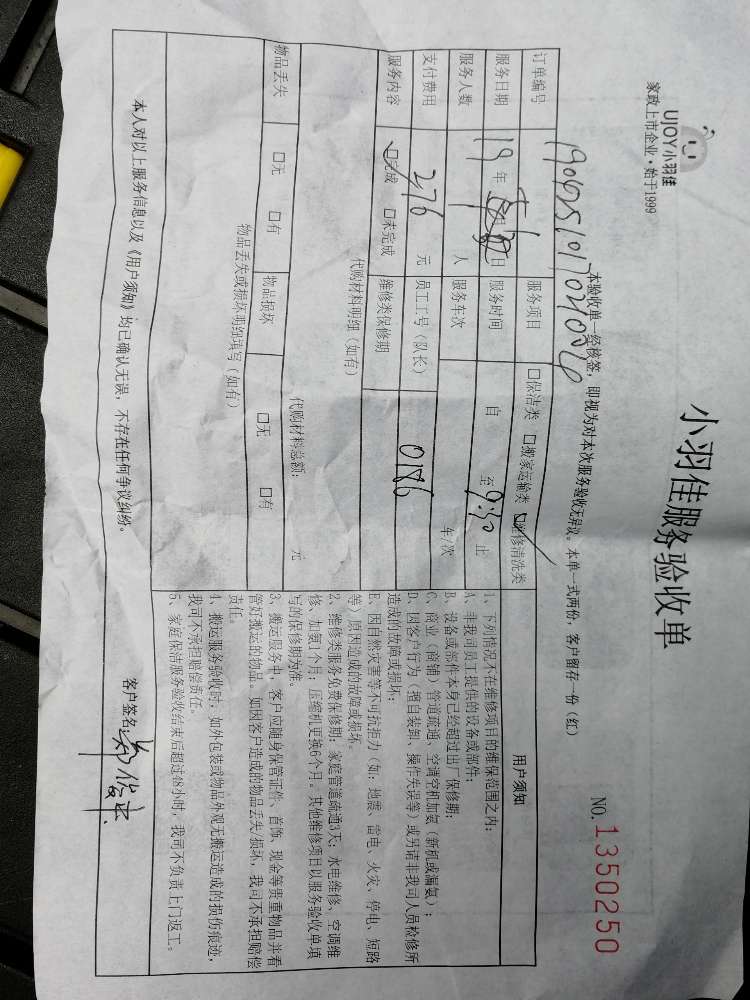 UJOY小羽佳
家政上市企业·始于1999
小羽佳服务验收单
NO. 1350250
本验收单一经核签，即视为对本次服务验收无异议。本单一式两份，客户留存一份（红）
订单编号
服务项目 口保洁类 口搬家运输类 ☑维修清洗类
服务日期 19 年 日 服务时间 自 至 9:30 止
服务人数 1 人 服务车次 车/次
支付费用 276 元 员工工号（队长） 0186
服务内容 ☑完成 口未完成 维修类保修期
代购材料明细（如有）
代购材料总额： 元
物品丢失 口无 口有 物品损坏 口无 口有
物品丢失或损坏明细填写（如有）
用户须知
1、下列情况不在维修项目的维保范围之内：
A、非我司员工提供的设备或部件；
B、设备或部件本身已经超过出厂保修期；
C、商业（商铺）管道疏通、空调空机加氨（新机或漏氨）；
D、因客户行为（擅自装卸、操作失误等）或另请非我司人员检修所
造成的故障或损坏；
E、因自然灾害等不可抗拒力（如：地震、雷电、火灾、停电、短路
等）原因造成的故障或损坏。
2、维修类服务免费保修期：家庭管道疏通3天；水电维修、空调维
修、加氨1个月；压缩机更换6个月。其他维修项目以服务验收单填
写的保修期为准。
3、搬运服务中，客户应随身保管证件、首饰、现金等贵重物品并看
管好搬运的物品。如因客户造成的物品丢失/损坏，我司不承担赔偿
责任。
4、搬运服务验收时，如外包装或物品外观无搬运造成的损伤痕迹，
我司不承担赔偿责任。
5、家庭保洁服务验收结束后超过48小时，我司不负责上门返工。
本人对以上服务信息以及《用户须知》均已确认无误，不存在任何争议纠纷。
客户签名：